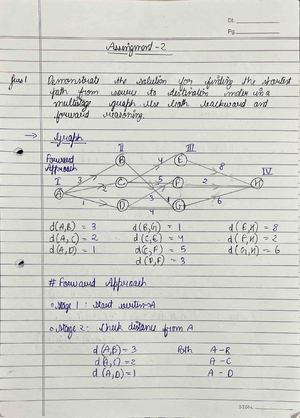 Dt.
Pg.
Assignment - 2
Ques 1 Demonstrate the solution for finding the shortest
path from source to destination node in a
multistage graph use both backward and
forward reasoning.
→ Graph
II III
Forward
Approach
I IV
A B C D E F G H
3 2 4 5 3 4 1 8 2 6
d(A,B) = 3 d(B,G) = 1 d(E,H) = 8
d(A,C) = 2 d(C,E) = 4 d(F,H) = 2
d(A,D) = 1 d(C,F) = 5 d(G,H) = 6
d(D,F) = 3
# Forward Approach
Stage 1 : Start vertex A
Stage 2 : Check distance from A
d(A,B) = 3 Path A - B
d(A,C) = 2 A - C
d(A,D) = 1 A - D
SIGN.